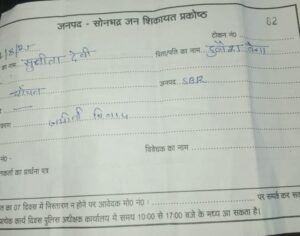 जनपद - सोनभद्र जन शिकायत प्रकोष्ठ
टोकन नं0 82
का नाम सुनीता देवी पिता/पति का नाम
चोपन जनपद SBR
जमीनी विवाद
नं0 -
विवेचक का नाम
कर्ता का प्रार्थना पत्र
त का 07 दिवस में निस्तारण न होने पर आवेदक मो0 नं0 पर सम्पर्क कर सक
प्रत्येक कार्य दिवस पुलिस अधीक्षक कार्यालय में समय 10:00 से 17:00 बजे के मध्य आ सकता है।